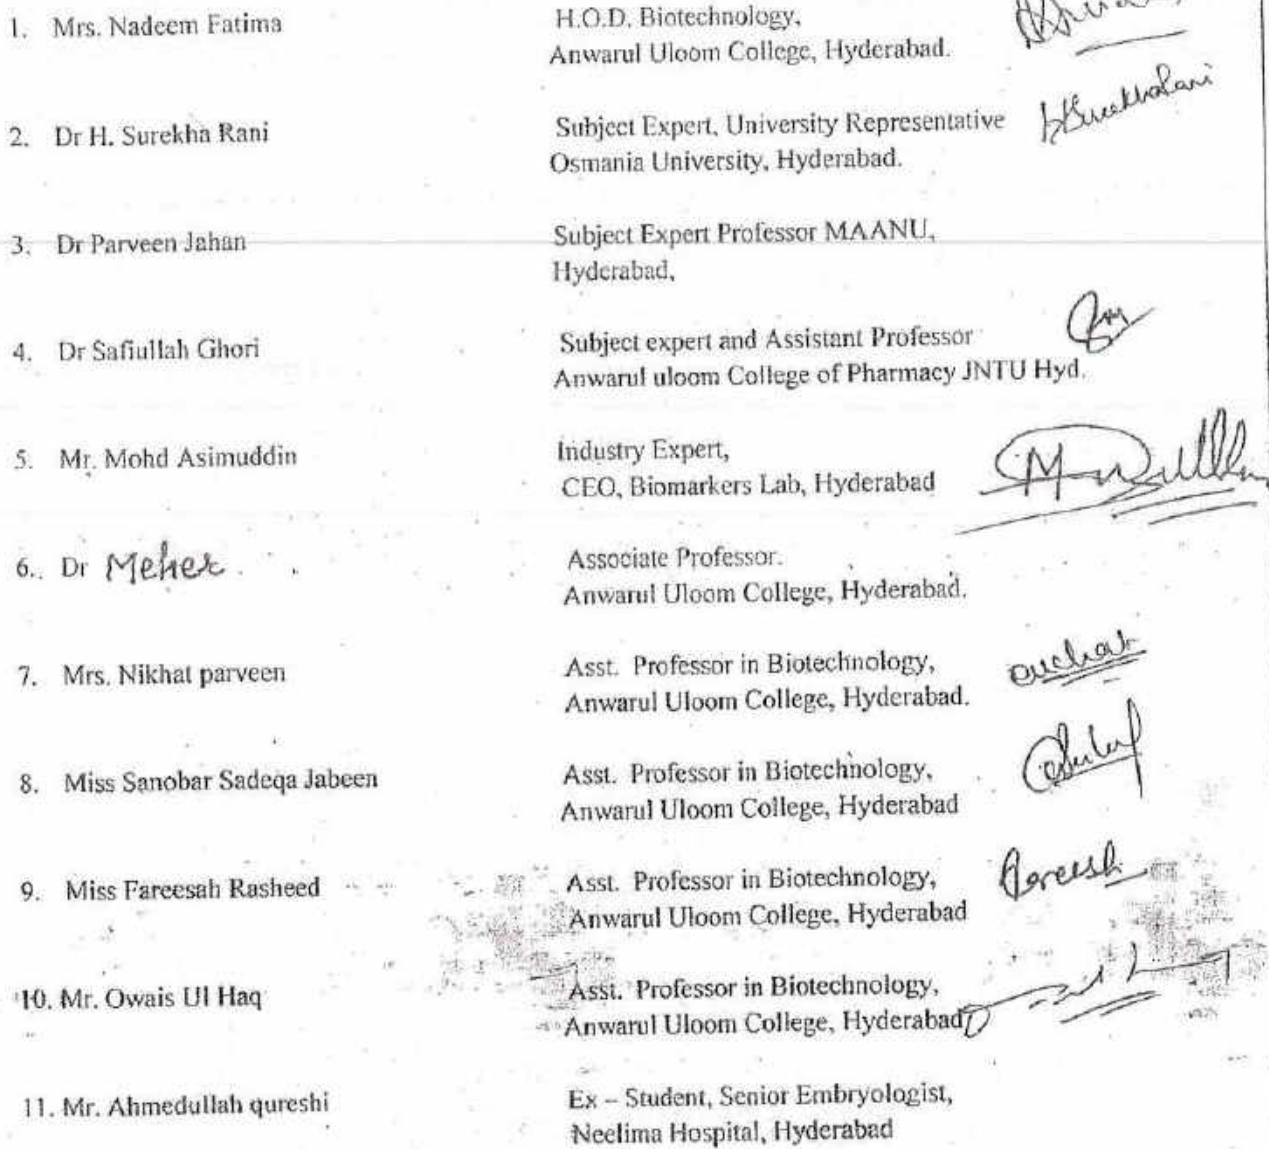 1. Mrs. Nadeem Fatima
H.O.D. Biotechnology,
Anwarul Uloom College, Hyderabad.
2. Dr H. Surekha Rani
Subject Expert, University Representative
Osmania University, Hyderabad.
HSurekhaRani
3. Dr Parveen Jahan
Subject Expert Professor MAANU,
Hyderabad,
4. Dr Safiullah Ghori
Subject expert and Assistant Professor
Anwarul uloom College of Pharmacy JNTU Hyd.
5. Mr. Mohd Asimuddin
Industry Expert,
CEO, Biomarkers Lab, Hyderabad
6. Dr Meher
Associate Professor.
Anwarul Uloom College, Hyderabad.
7. Mrs. Nikhat parveen
Asst. Professor in Biotechnology,
Anwarul Uloom College, Hyderabad.
8. Miss Sanobar Sadeqa Jabeen
Asst. Professor in Biotechnology,
Anwarul Uloom College, Hyderabad
9. Miss Fareesah Rasheed
Asst. Professor in Biotechnology,
Anwarul Uloom College, Hyderabad
10. Mr. Owais Ul Haq
Asst. Professor in Biotechnology,
Anwarul Uloom College, Hyderabad
11. Mr. Ahmedullah qureshi
Ex – Student, Senior Embryologist,
Neelima Hospital, Hyderabad